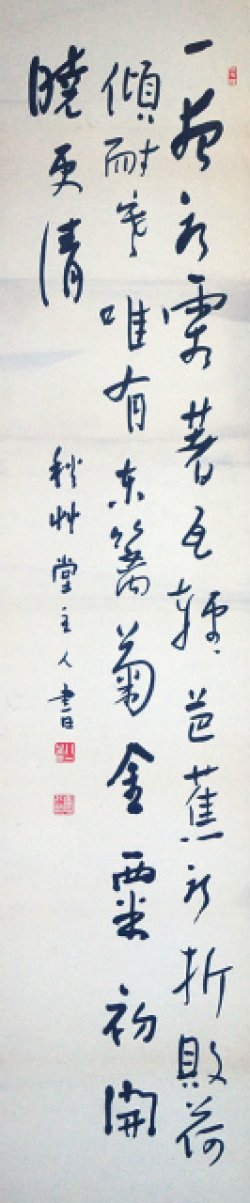 一夜新霜著瓦輕芭蕉新折敗荷
傾耐寒唯有東籬菊金粟初開
曉更清
秋艸堂主人書